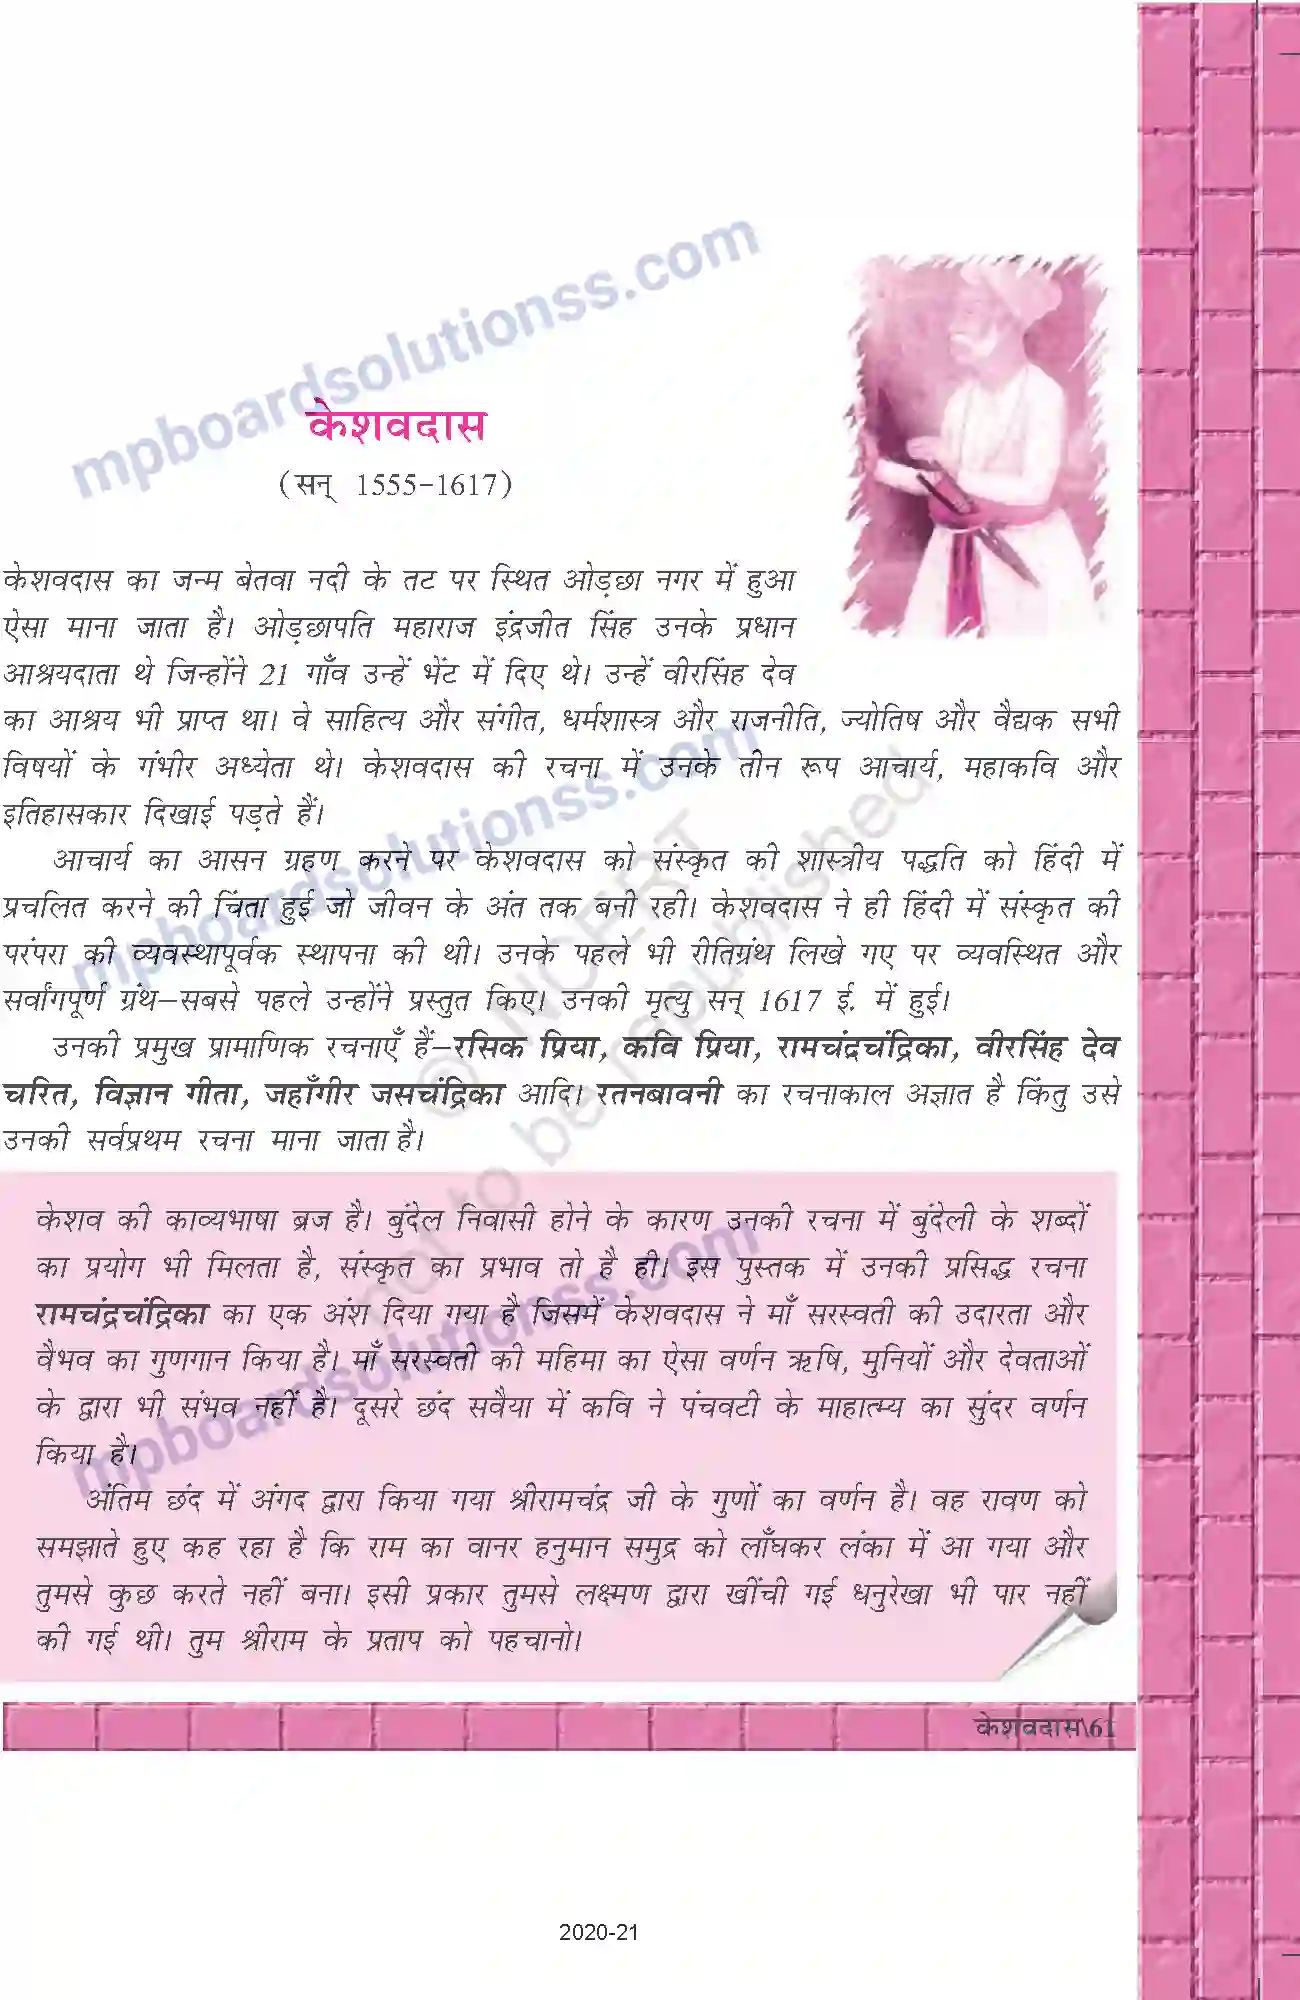 केशवदास
(सन् 1555-1617)
केशवदास का जन्म बेतवा नदी के तट पर स्थित ओड़छा नगर में हुआ
ऐसा माना जाता है। ओड़छापति महाराज इंद्रजीत सिंह उनके प्रधान
आश्रयदाता थे जिन्होंने 21 गाँव उन्हें भेंट में दिए थे। उन्हें वीरसिंह देव
का आश्रय भी प्राप्त था। वे साहित्य और संगीत, धर्मशास्त्र और राजनीति, ज्योतिष और वैद्यक सभी
विषयों के गंभीर अध्येता थे। केशवदास की रचना में उनके तीन रूप आचार्य, महाकवि और
इतिहासकार दिखाई पड़ते हैं।
आचार्य का आसन ग्रहण करने पर केशवदास को संस्कृत की शास्त्रीय पद्धति को हिंदी में
प्रचलित करने की चिंता हुई जो जीवन के अंत तक बनी रही। केशवदास ने ही हिंदी में संस्कृत की
परंपरा की व्यवस्थापूर्वक स्थापना की थी। उनके पहले भी रीतिग्रंथ लिखे गए पर व्यवस्थित और
सर्वांगपूर्ण ग्रंथ—सबसे पहले उन्होंने प्रस्तुत किए। उनकी मृत्यु सन् 1617 ई. में हुई।
उनकी प्रमुख प्रामाणिक रचनाएँ हैं—रसिक प्रिया, कवि प्रिया, रामचंद्रचंद्रिका, वीरसिंह देव
चरित, विज्ञान गीता, जहाँगीर जसचंद्रिका आदि। रतनबावनी का रचनाकाल अज्ञात है किंतु उसे
उनकी सर्वप्रथम रचना माना जाता है।
केशव की काव्यभाषा ब्रज है। बुंदेल निवासी होने के कारण उनकी रचना में बुंदेली के शब्दों
का प्रयोग भी मिलता है, संस्कृत का प्रभाव तो है ही। इस पुस्तक में उनकी प्रसिद्ध रचना
रामचंद्रचंद्रिका का एक अंश दिया गया है जिसमें केशवदास ने माँ सरस्वती की उदारता और
वैभव का गुणगान किया है। माँ सरस्वती की महिमा का ऐसा वर्णन ऋषि, मुनियों और देवताओं
के द्वारा भी संभव नहीं है। दूसरे छंद सवैया में कवि ने पंचवटी के माहात्म्य का सुंदर वर्णन
किया है।
अंतिम छंद में अंगद द्वारा किया गया श्रीरामचंद्र जी के गुणों का वर्णन है। वह रावण को
समझाते हुए कह रहा है कि राम का वानर हनुमान समुद्र को लाँघकर लंका में आ गया और
तुमसे कुछ करते नहीं बना। इसी प्रकार तुमसे लक्ष्मण द्वारा खींची गई धनुरेखा भी पार नहीं
की गई थी। तुम श्रीराम के प्रताप को पहचानो।
केशवदास\61
2020-21
mpboardsolutionss.com
mpboardsolutionss.com
mpboardsolutionss.com
© NCERT
not to be republished